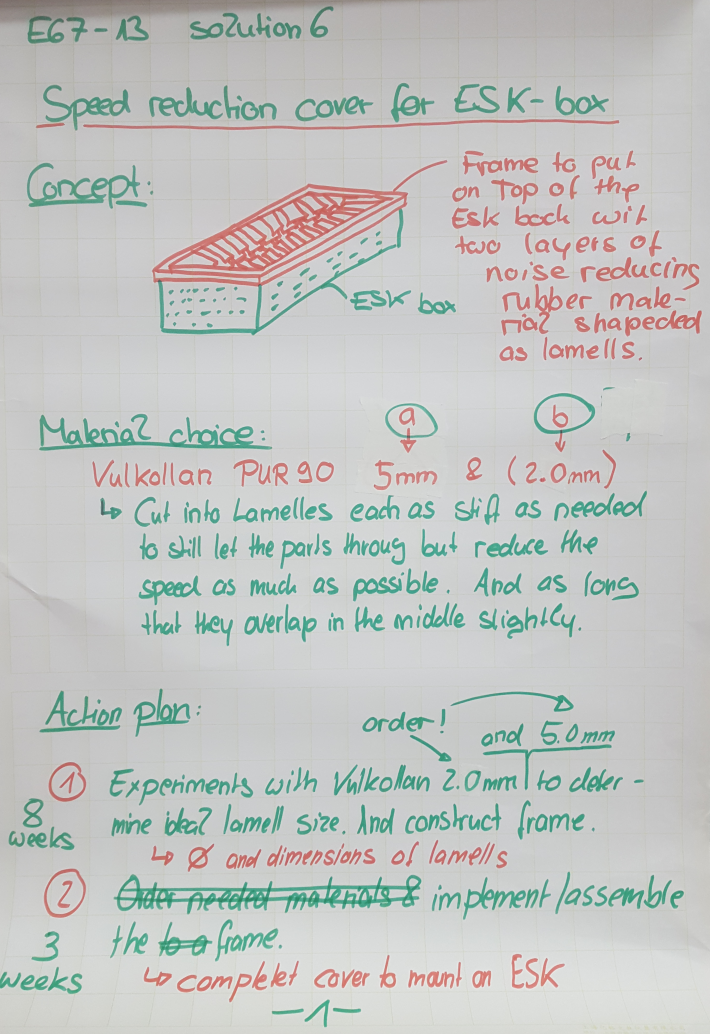 E67-13 solution 6
Speed reduction cover for ESK-box
Concept:
Frame to put
on Top of the
Esk bock wit
two layers of
noise reducing
rubber mate-
rial shapeded
as lamells.
ESK box
Material choice:
a
b
Vulkollan PUR 90 5mm & (2.0mm)
↳ Cut into Lamelles each as stiff as needed
to still let the parts throug but reduce the
speed as much as possible. And as long
that they overlap in the middle slightly.
Action plan:
order!
and 5.0mm
1 Experiments with Vulkollan 2.0mm to deter-
mine ideal lamell size. And construct frame.
8
weeks
↳ Ø and dimensions of lamells
2 Order needed materials & implement/assemble
the to a frame.
3
weeks
↳ complet cover to mount on ESK
-1-